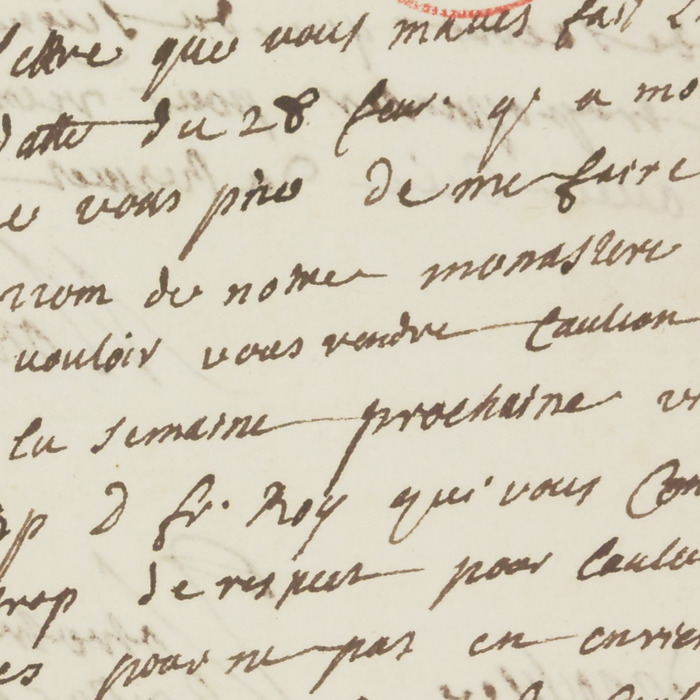 lettre que vous maves fait
datte du 28 feur. q' a mo
vous prie de me faire
nom de notre monastere
vouloir vous rendre Caution
la semaine prochaine
p D fr. Roy qui vous Com
trop de respect pour
es pour ne pas en